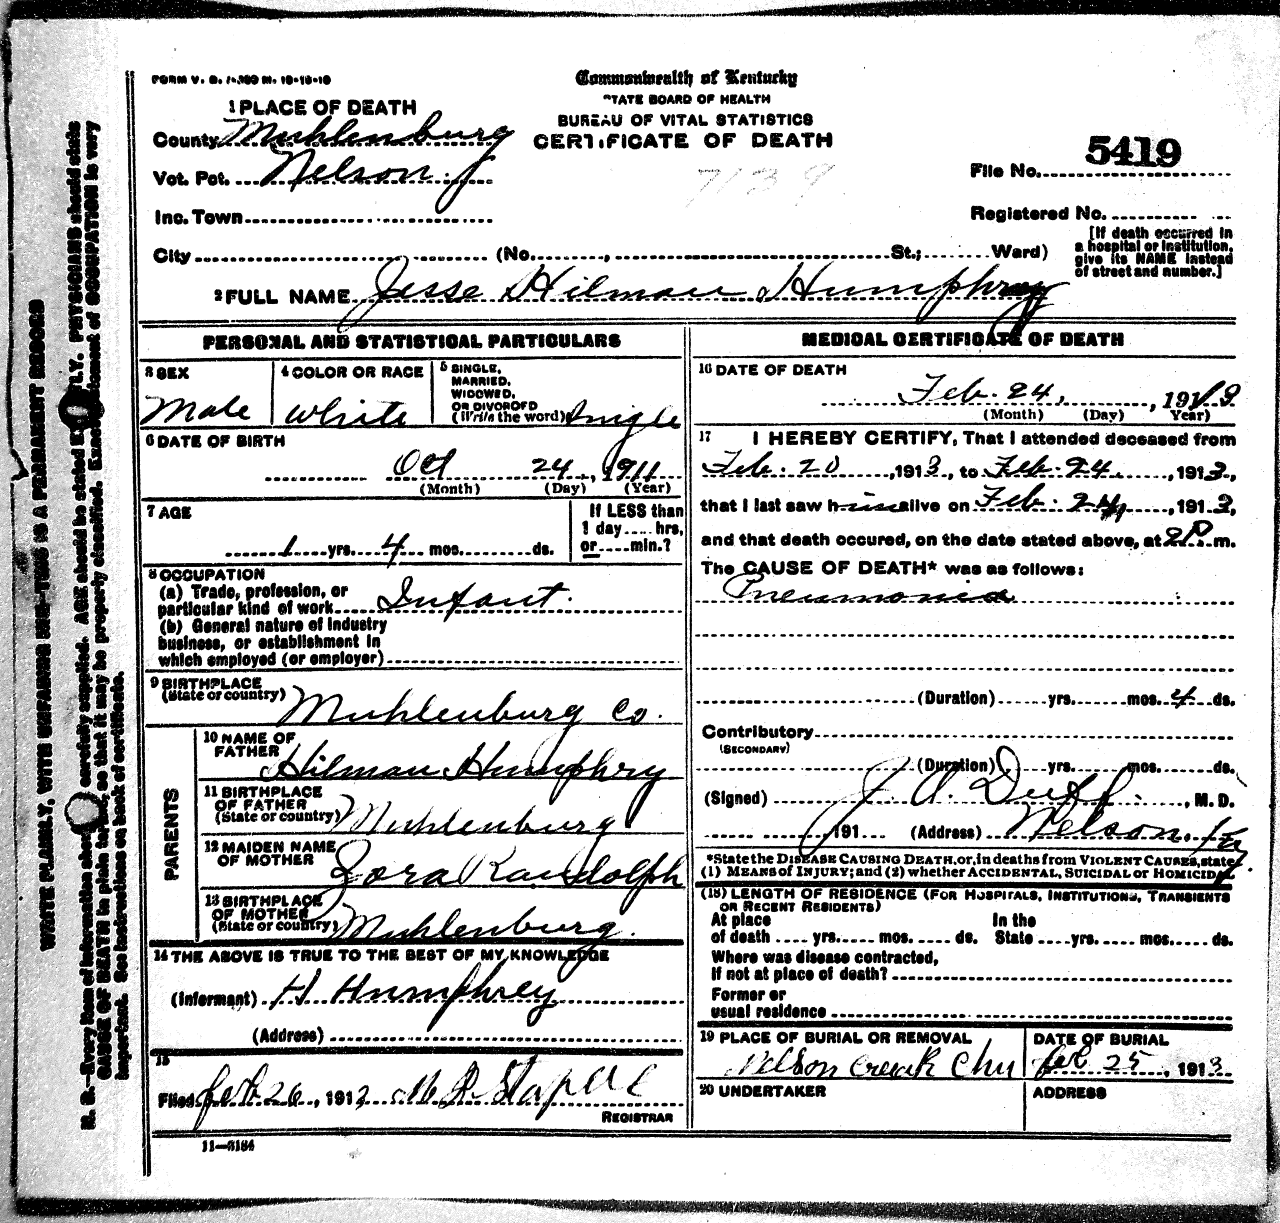 FORM V. S. 7-300 M. 10-10-10
Commonwealth of Kentucky
STATE BOARD OF HEALTH
BUREAU OF VITAL STATISTICS
CERTIFICATE OF DEATH
1 PLACE OF DEATH
County Muhlenburg
Vot. Pct. Nelson
Inc. Town
City (No. , St.; Ward)
7139
File No. 5419
Registered No.
[If death occurred in
a hospital or institution,
give its NAME instead
of street and number.]
2 FULL NAME Jesse Hilman Humphrey
PERSONAL AND STATISTICAL PARTICULARS
3 SEX
Male
4 COLOR OR RACE
White
5 SINGLE,
MARRIED,
WIDOWED,
OR DIVORCED
(Write the word) Single
6 DATE OF BIRTH
Oct 24, 1911
(Month) (Day) (Year)
7 AGE
1 yrs. 4 mos. ds.
If LESS than
1 day hrs,
or min.?
8 OCCUPATION
(a) Trade, profession, or
particular kind of work Infant.
(b) General nature of industry
business, or establishment in
which employed (or employer)
9 BIRTHPLACE
(State or country) Muhlenburg Co.
PARENTS
10 NAME OF
FATHER Hilman Humphry
11 BIRTHPLACE
OF FATHER
(State or country) Muhlenburg
12 MAIDEN NAME
OF MOTHER Zora Randolph
13 BIRTHPLACE
OF MOTHER
(State or country) Muhlenburg.
14 THE ABOVE IS TRUE TO THE BEST OF MY KNOWLEDGE
(Informant) H Humphrey
(Address)
15
Filed feb 26, 1913
REGISTRAR
11—3184
MEDICAL CERTIFICATE OF DEATH
16 DATE OF DEATH
Feb. 24, 1913
(Month) (Day) Year)
17 I HEREBY CERTIFY, That I attended deceased from
Feb. 20, 1913, to Feb. 24, 1913,
that I last saw him alive on Feb. 24, 1913,
and that death occured, on the date stated above, at 2 P. m.
The CAUSE OF DEATH* was as follows:
Pneumonia
(Duration) yrs. mos. 4 ds.
Contributory
(SECONDARY)
(Duration) yrs. mos. ds.
(Signed) J. A. Duff, M. D.
, 191 (Address) Nelson, Ky
*State the DISEASE CAUSING DEATH, or, in deaths from VIOLENT CAUSES, state
(1) MEANS OF INJURY; and (2) whether ACCIDENTAL, SUICIDAL or HOMICIDAL
(18) LENGTH OF RESIDENCE (FOR HOSPITALS, INSTITUTIONS, TRANSIENTS
OR RECENT RESIDENTS)
At place In the
of death yrs. mos. ds. State yrs. mos. ds.
Where was disease contracted,
If not at place of death?
Former or
usual residence
19 PLACE OF BURIAL OR REMOVAL
Nelson Creek Chu
DATE OF BURIAL
feb 25, 1913
20 UNDERTAKER
ADDRESS
N. B.—Every item of information should be carefully supplied. AGE should be stated EXACTLY. PHYSICIANS should state
CAUSE OF DEATH in plain terms, so that it may be properly classified. Exact statement of OCCUPATION is very
important. See instructions on back of certificate.
WRITE PLAINLY, WITH UNFADING INK—THIS IS A PERMANENT RECORD